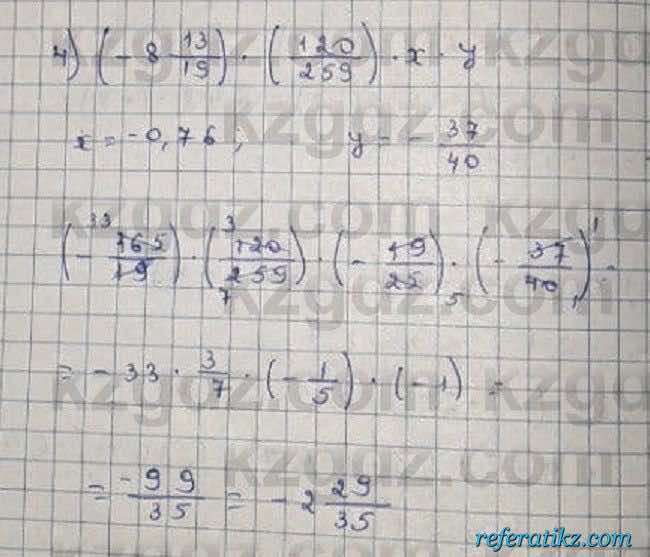 4) (-8 13/19) · (120/259) · x · y
x = -0,76; y = - 37/40
(- 165/19) · (120/259) · (- 19/25) · (- 37/40) =
33 3 7 5 1 1
= - 33 · 3/7 · (- 1/5) · (-1) =
= -99/35 = - 2 29/35
kzgdz.com
referatikz.com